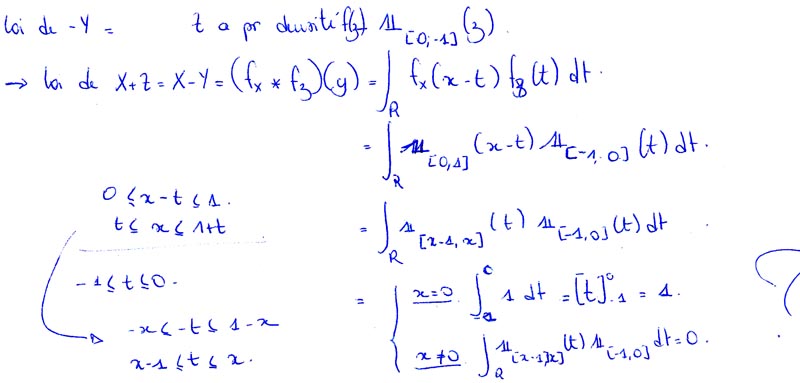 Loi de -Y = Z a pr densité f(z) 𝟙_[0,-1](z).
→ Loi de X+Z = X-Y = (f_x * f_z)(y) = ∫_R f_x(x-t) f_z(t) dt.
= ∫_R 𝟙_[0,1](x-t) 𝟙_[-1,0](t) dt.
0 ≤ x-t ≤ 1.
t ≤ x ≤ 1+t
= ∫_R 𝟙_[x-1,x](t) 𝟙_[-1,0](t) dt
-1 ≤ t ≤ 0.
-x ≤ -t ≤ 1-x
x-1 ≤ t ≤ x.
= { x=0. ∫_-1^0 1 dt = [t]_-1^0 = 1.
x≠0 ∫_R 𝟙_[x-1,x](t) 𝟙_[-1,0] dt = 0.
?